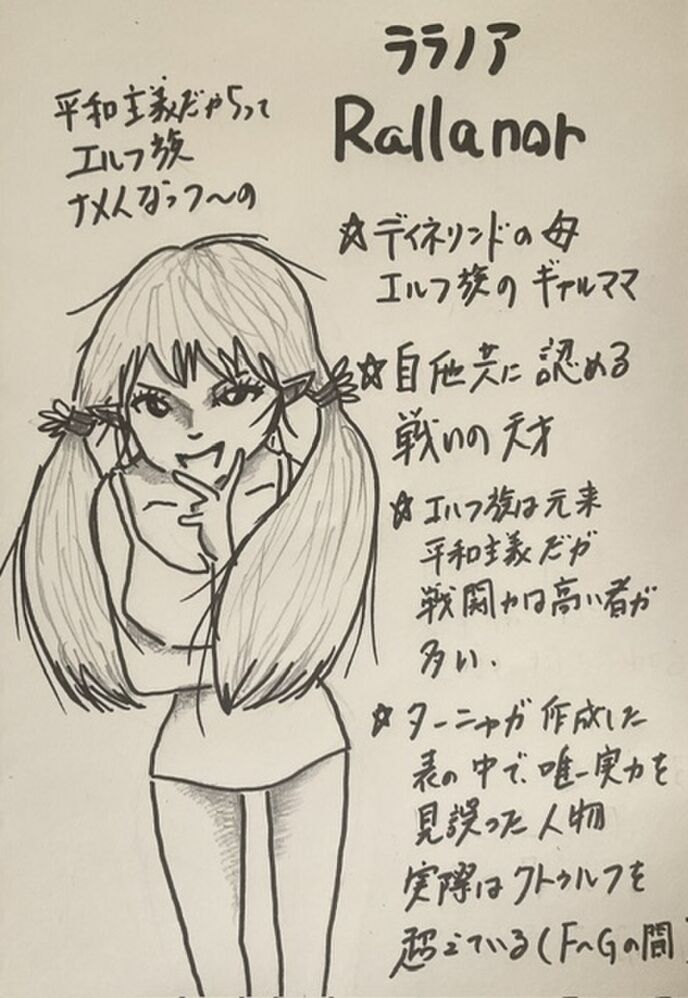 ララノア
Rallanor
平和主義だからって
エルフ族
ナメんなっつ〜の
☆ディネリンドの母
エルフ族のギャルママ
☆自他共に認める
戦いの天才
☆エルフ族は元来
平和主義だが
戦闘力は高い者が
多い.
☆ターニャが作成した
表の中で、唯一実力を
見誤った人物
実際はクトゥルフを
超えている(F〜Gの間)